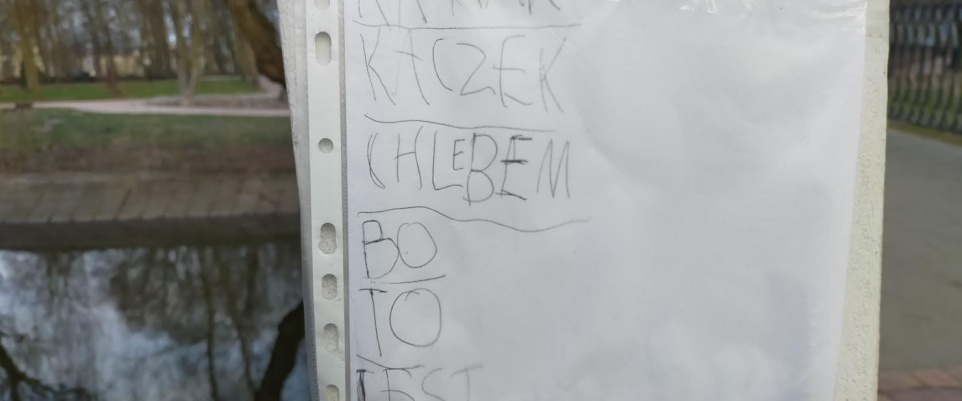 KACZEK
CHLEBEM
BO
TO
JEST